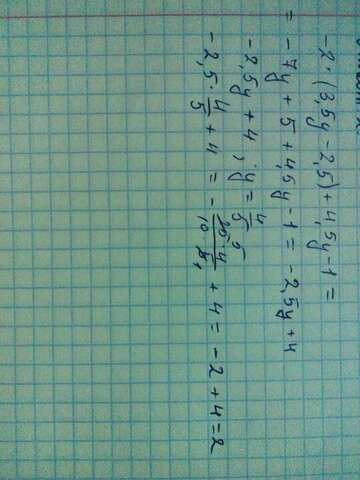 -2·(3,5y-2,5)+4,5y-1=
=-7y+5+4,5y-1=-2,5y+4
-2,5y+4; y=4/5
-2,5·4/5+4=-25·4/10·5+4=-2+4=2